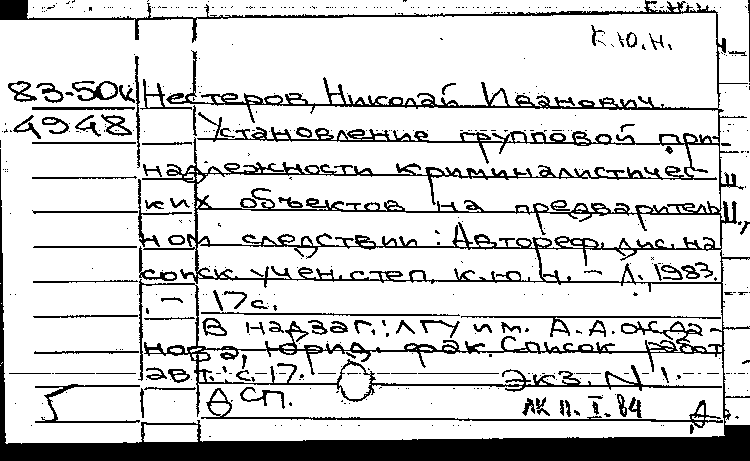 К.Ю.Н.
83-50к Нестеров, Николай Иванович.
4948 Установление групповой при-
надлежности криминалистичес-
ких объектов на предваритель
ном следствии: Автореф. дис. на
соиск. учен. степ. к.ю.н. – Л., 1983.
. – 17 с.
В надзаг.: ЛГУ им. А.А. Жда-
нова, Юрид. фак. Список работ
авт.: с. 17. Экз. N 1.
ДСП. ЛК 11. I. 84